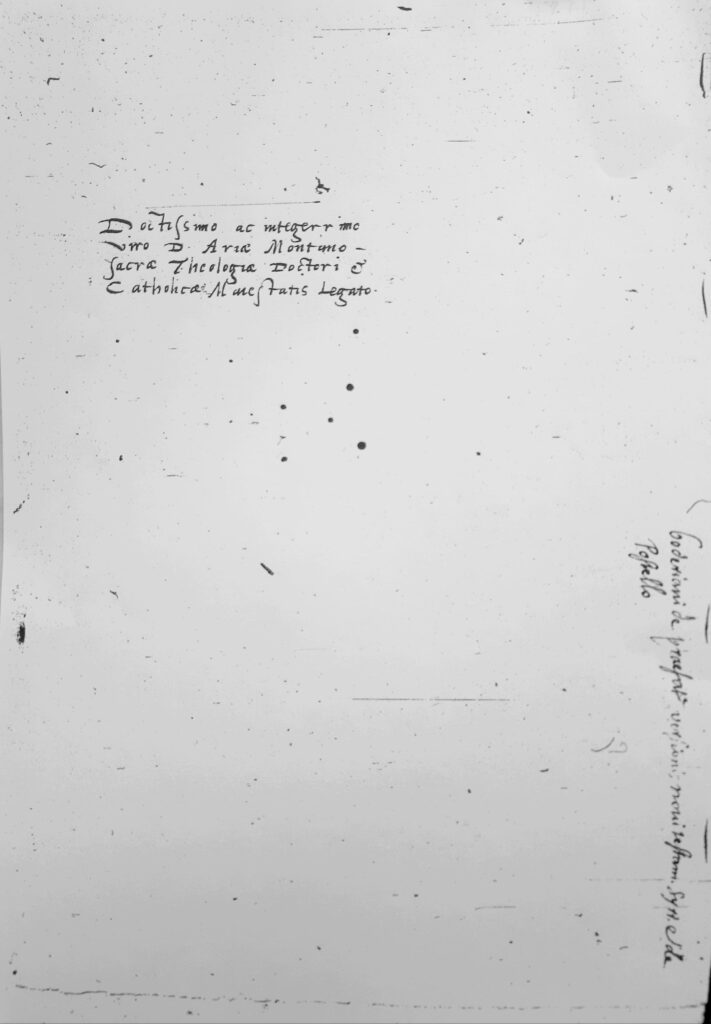 Doctissimo ac integerrimo
viro D. Ariæ Montano –
sacræ Theologiæ Doctori &
Catholicæ Maiestatis Legato.
boderiani de præfat.e versionis novi testam. Syr. et de
Postello